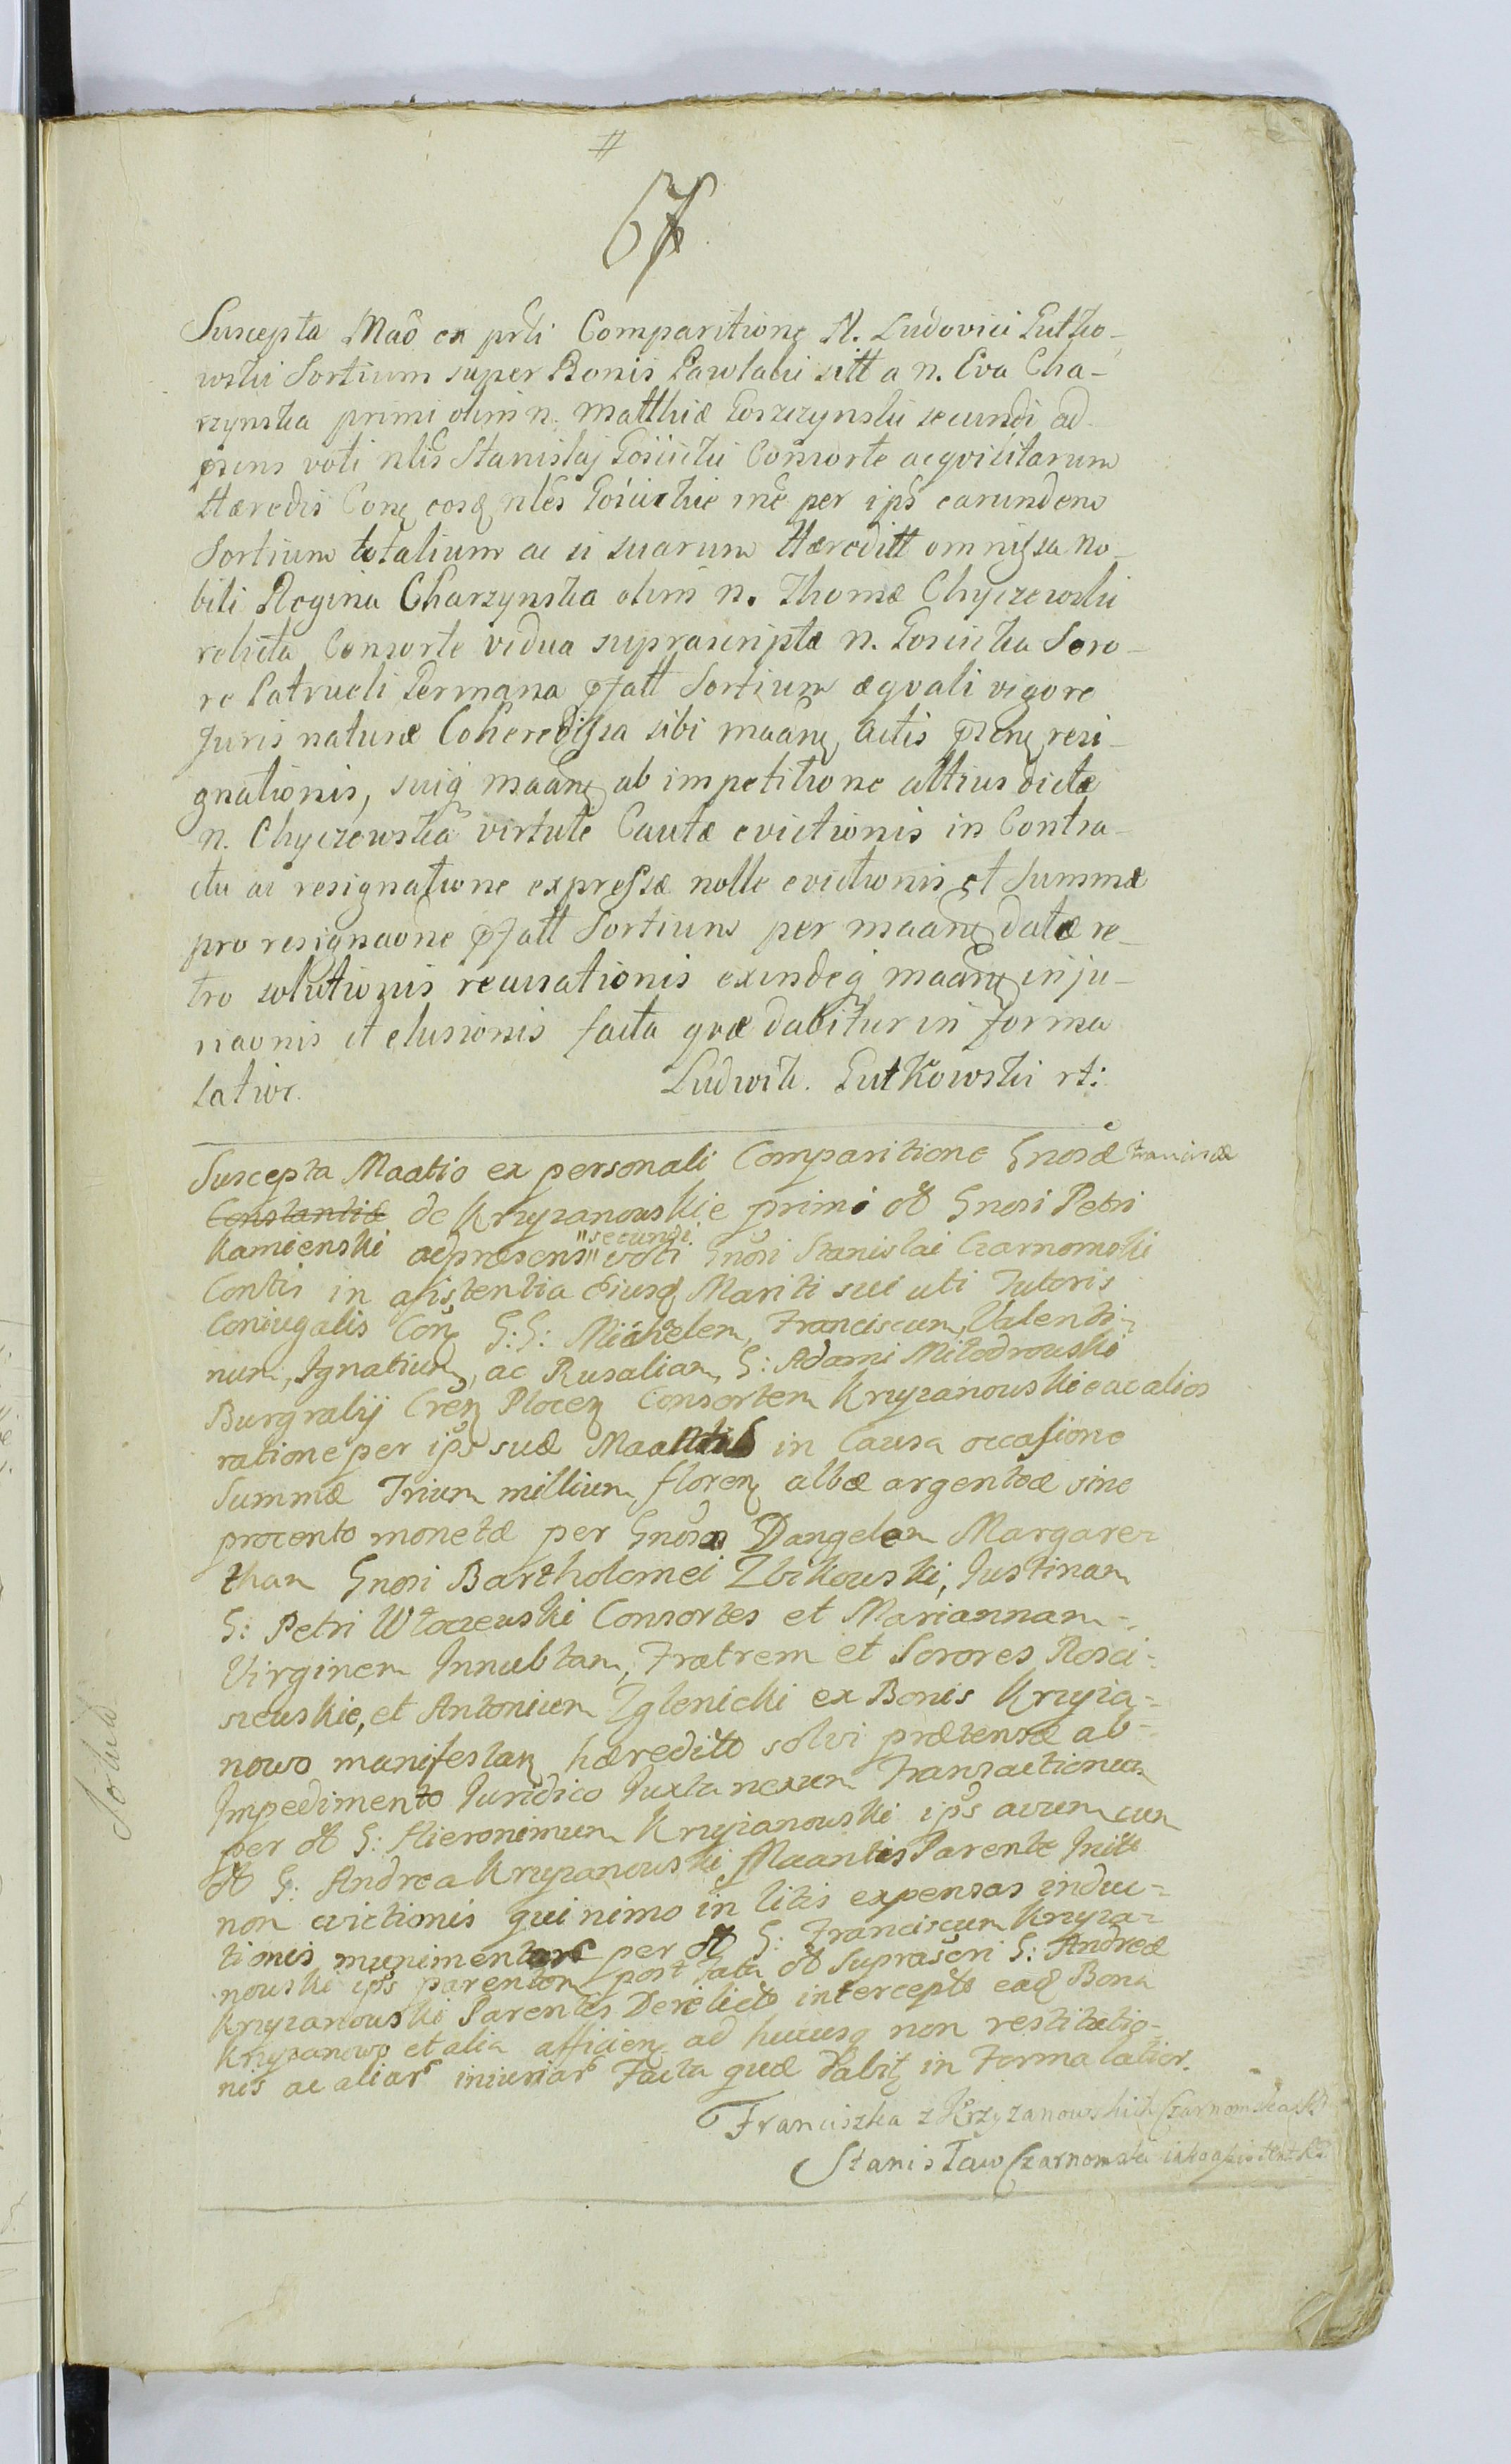 #
67
Suscepta Maõ ex prli Comparitione N. Ludovici Gutko-
wski Sortium super Bonis Pawlaki sitt a n. Eva Cha-
rzynska primi olim n. Matthiæ Goszczynski secundi ad
præns voti nlis Stanislaj Gosicki Consorte acqvisitarum
Hæredis Conq eosq nles Gosickie me per ips earundem
Sortium totalium ac si suarum Hæreditt omnissa no-
bili Regina Charzynska olim n. Thomæ Chyczewski
relicta Consorte vidua suprascriptæ n. Gosicka Soro-
re Patrueli Germana Sortium æqvali vigore
Juris naturæ Coheredissa sibi maanq Actis resi-
gnationis, suiq maanq ab impetitione altius dictæ
n. Chyczewska virtute Cautæ evictionis in Contra-
ctu ac resignatione expressæ nolle evictionis et Summæ
pro resignaone Sortium per maanq datæ re-
tro solutionis recusationis exindeq maanq inju-
riaonis et elusionis facta qvæ dabitur in forma
latior. Ludwik. Gutkowski rt:
Suscepta Maatio ex personali Comparitione Gnosæ Franciscæ
Constantiæ de Krzyzanowskie primi ol Gnosi Petri
Kamienski adpræsens "secundi" voti Gnosi Stanislai Czarnomski
Contis in assistentia Eiusq Mariti sui uti Tutoris
Coniugalis Conq G: G: Michælem, Franciscum, Valenti-
num, Ignatium, ac Rusaliam, G: Adami Miłodrowski
Burgrabij Cren Plocen Consortem Krzyzanowskie ac alios
ratione per ips suæ in Causa occasione
Summæ Trium millium florenq albæ argenteæ sine
procento monetæ per Gnosos Dangelem Margare-
tham Gnosi Bartholomei Zbikowski, Justinam
G: Petri Włoczewski Consortes et Mariannam-
Virginem Innubtam, Fratrem et Sorores Rosci-
szewskie, et Antonium Zglenicki ex Bonis Krzyża-
nowo manifestanq hæreditt solvi prætensæ ab-
Impedimento Juridico Juxta nexum Transactionum
per ol G: Hieronimum Krzyżanowski ips avum cum
ol G: Andrea Krzyzanowski Maantis Parente Initt
non evictionis qui nimo in litis expensas induc-
tionis munimentor per ol G: Franciscum Krzyza-
nowski ips parentem post fata ol Suprascri G: Andreæ
Krzyzanowski Parentis Derelict intercept eaq Bona
Krzyzanowo et alia afficienq ad hucusq non restitutio-
nis ac aliar iniuriar Facta quæ dabitq in Forma latior.
Franciszka z Krzyzanowskich Czarnomska
Stanisław Czarnomski iako assistent
Solut